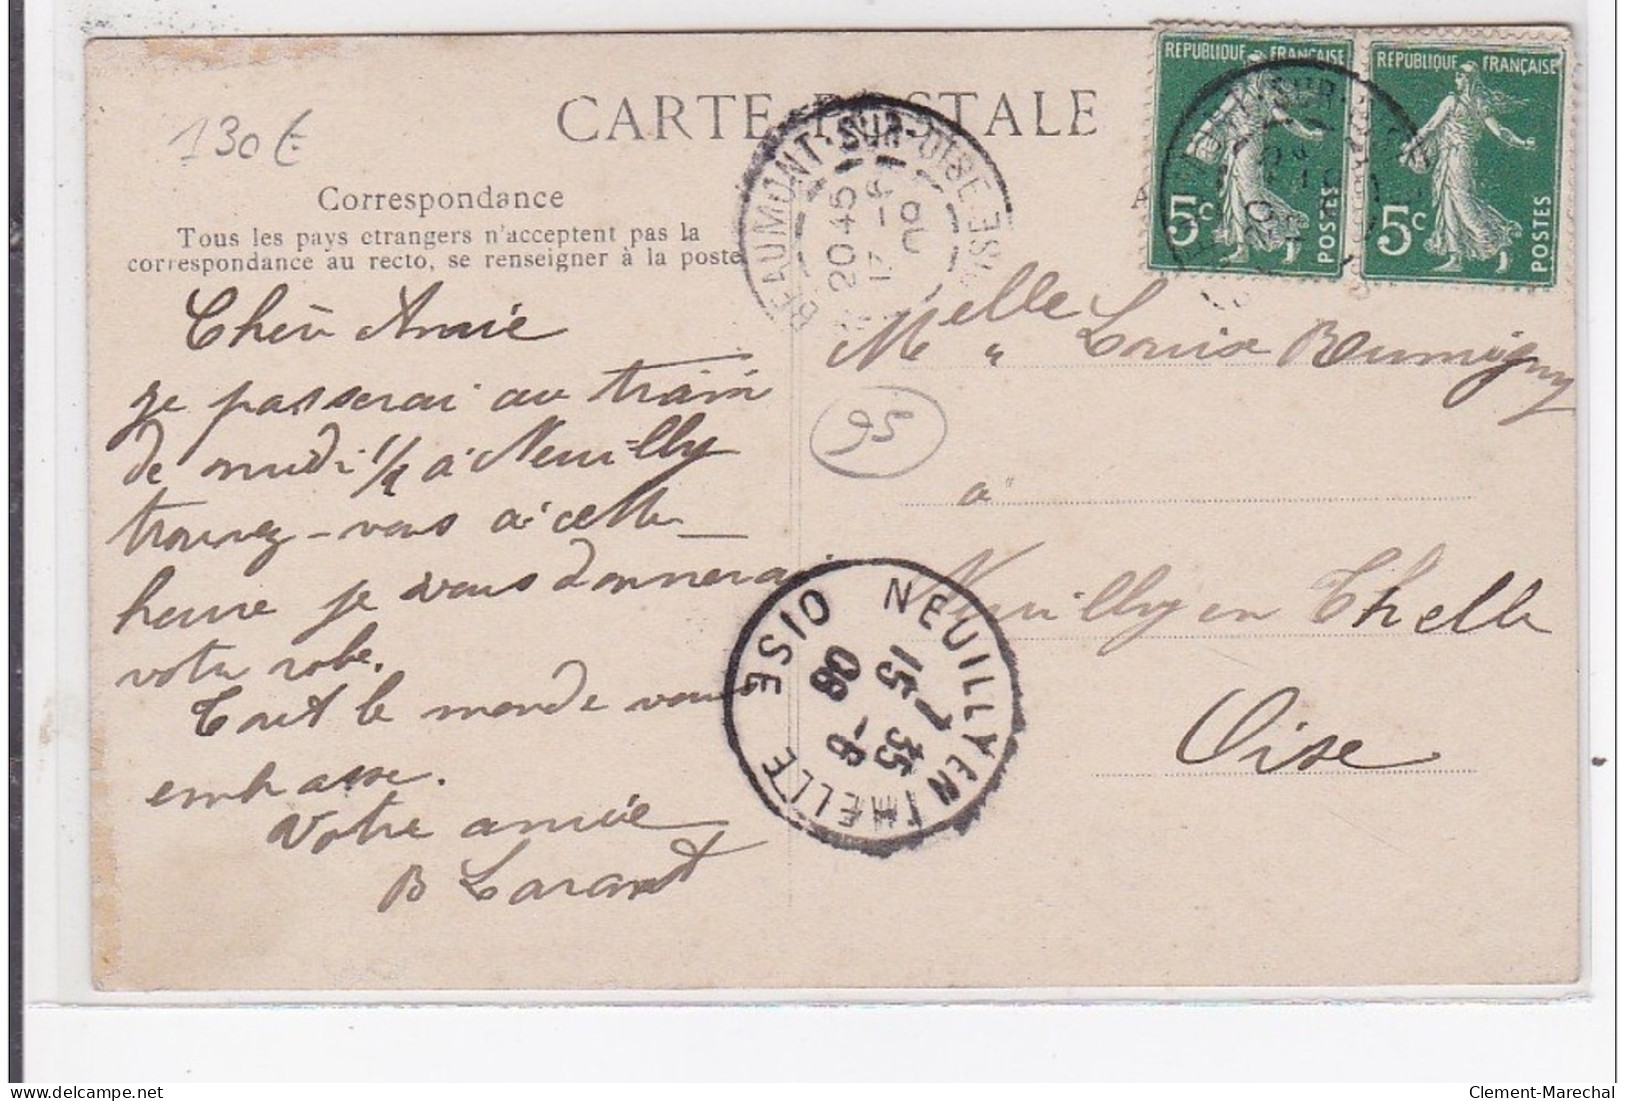 130 €
CARTE POSTALE
RÉPUBLIQUE FRANÇAISE
5c POSTES
RÉPUBLIQUE FRANÇAISE
5c POSTES
BEAUMONT-SUR-OISE
20 45
17 - 6
OISE
Correspondance
Tous les pays etrangers n'acceptent pas la
correspondance au recto, se renseigner à la poste
Chère Amie
je passerai au train
de midi 1/2 à Neuilly
trouvez-vous à cette
heure je vous donnerai
votre robe.
Tout le monde vous
embrasse.
Votre amie
B
Melle Louise
95
à
Neuilly en Thelle
Oise
NEUILLY EN THELLE OISE
15 35
7 - 6
08
Clement-Marechal